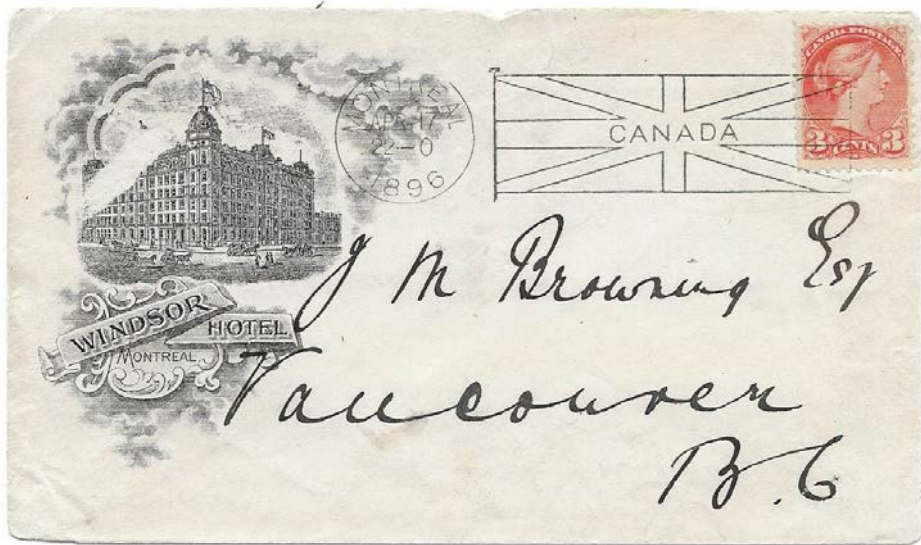 MONTREAL
AP 17
22-0
1896
CANADA
CANADA POSTAGE
3 CENTS 3
WINDSOR
HOTEL
MONTREAL
J M Browning Esq
Vancouver
B.C